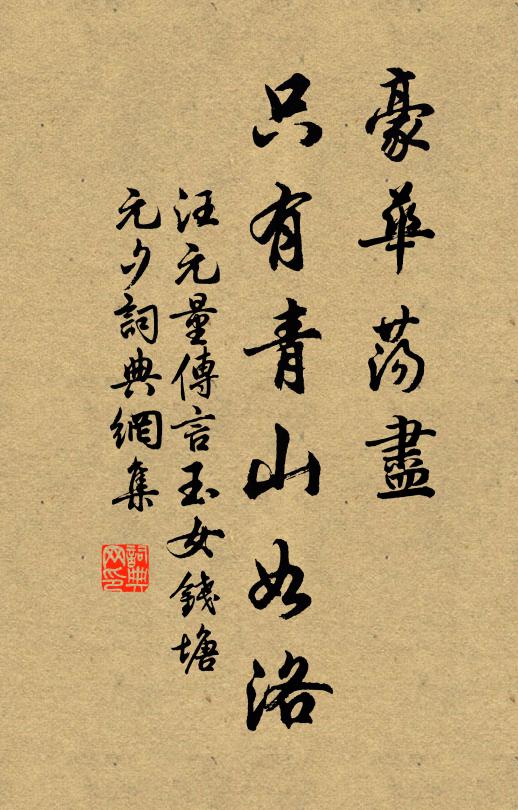 豪華荡盡
只有青山如洛
汪元量傳言玉女錢塘
元夕詞典網集
詞典网印